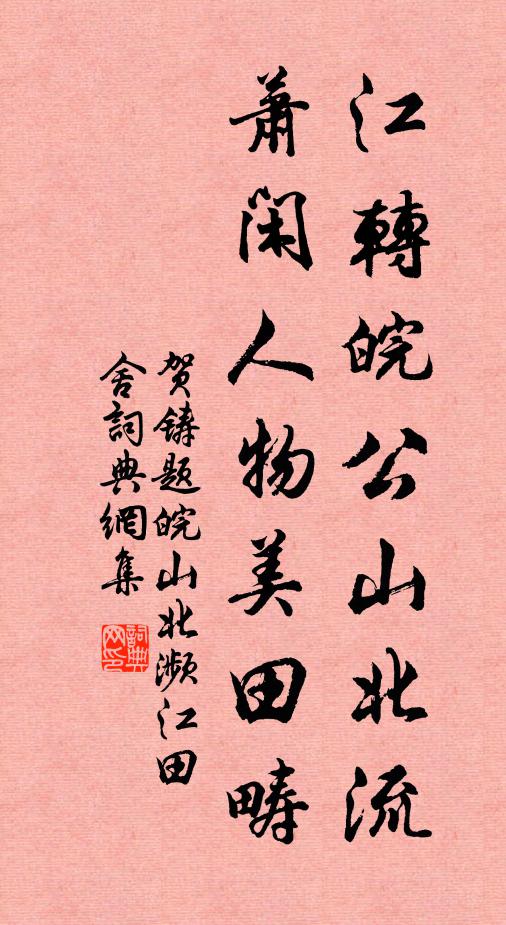 江轉皖公山北流
蕭閑人物美田疇
贺鑄题皖山北濒江田
舍詞典網集
詞典网印